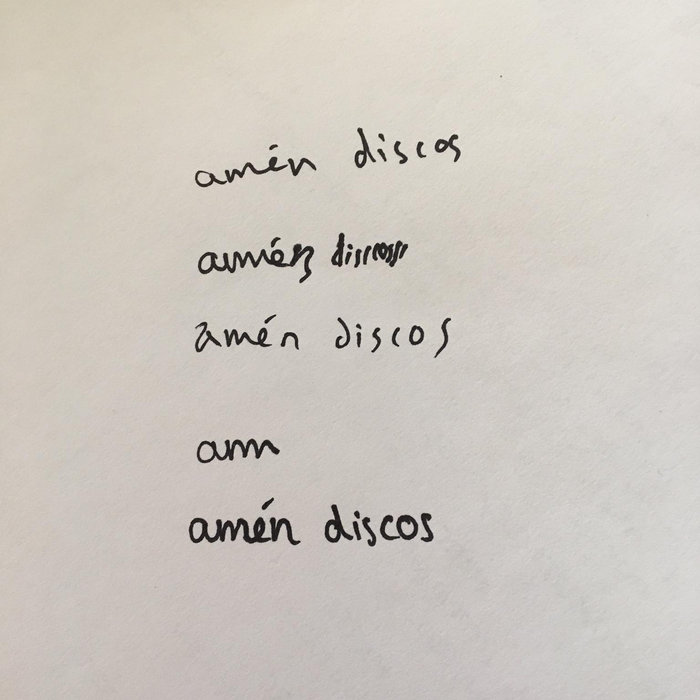 amén discos
amén discos
amén discos
am
amén discos